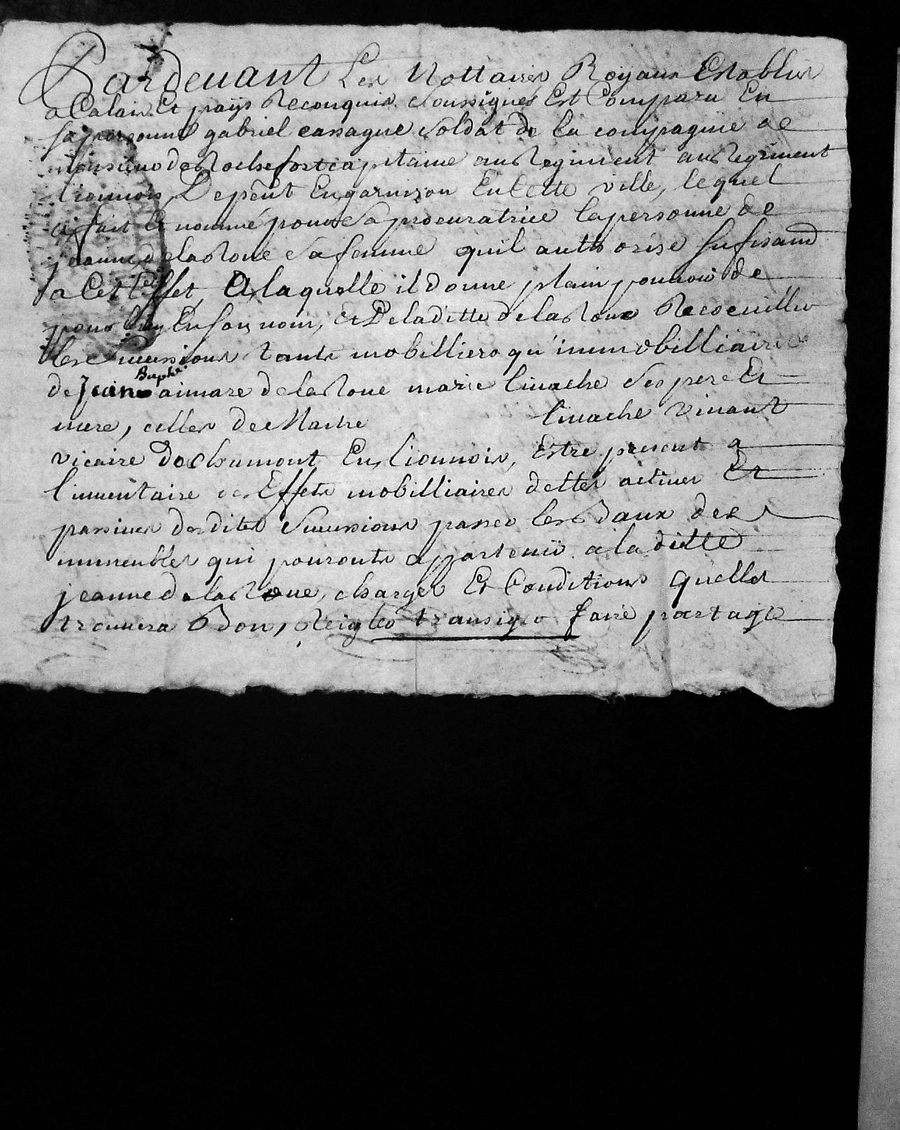 Pardevant Les Nottaires Royaux Establis
a Calais Et pays Reconquis soussignes Est Comparu En
sa personne gabriel cassagne soldat de la compagnie de
monsieur de Rochefort capitaine au Regiment au Regiment
Lionnois, De pent En garnizon En Cette ville, lequel
a fait Et nommé pour sa procuratrice la personne de
jeanne delaRoue sa femme quil authorise sufisand
a Cet Effet A laquelle il donne plain pouvoir de
pour luy En son nom, Et De laditte delaRoue Recoeuillir
les successions tants mobilliers qu'immobilliaires
de jean Bapte aimare delaRoue marie linache ses pere Et
mere, celles de Maitre linache vivant
vicaire de chamont En Lionnois, Estre present a
l'inventaire des Effets mobilliaires dettes actives Et
passives desdites successions passer les Baux des
immeubles qui pouronts appartenir a la ditte
jeanne delaRoue, charges Et Conditions quelles
trouvera Bon, Reigler transiger faire partage